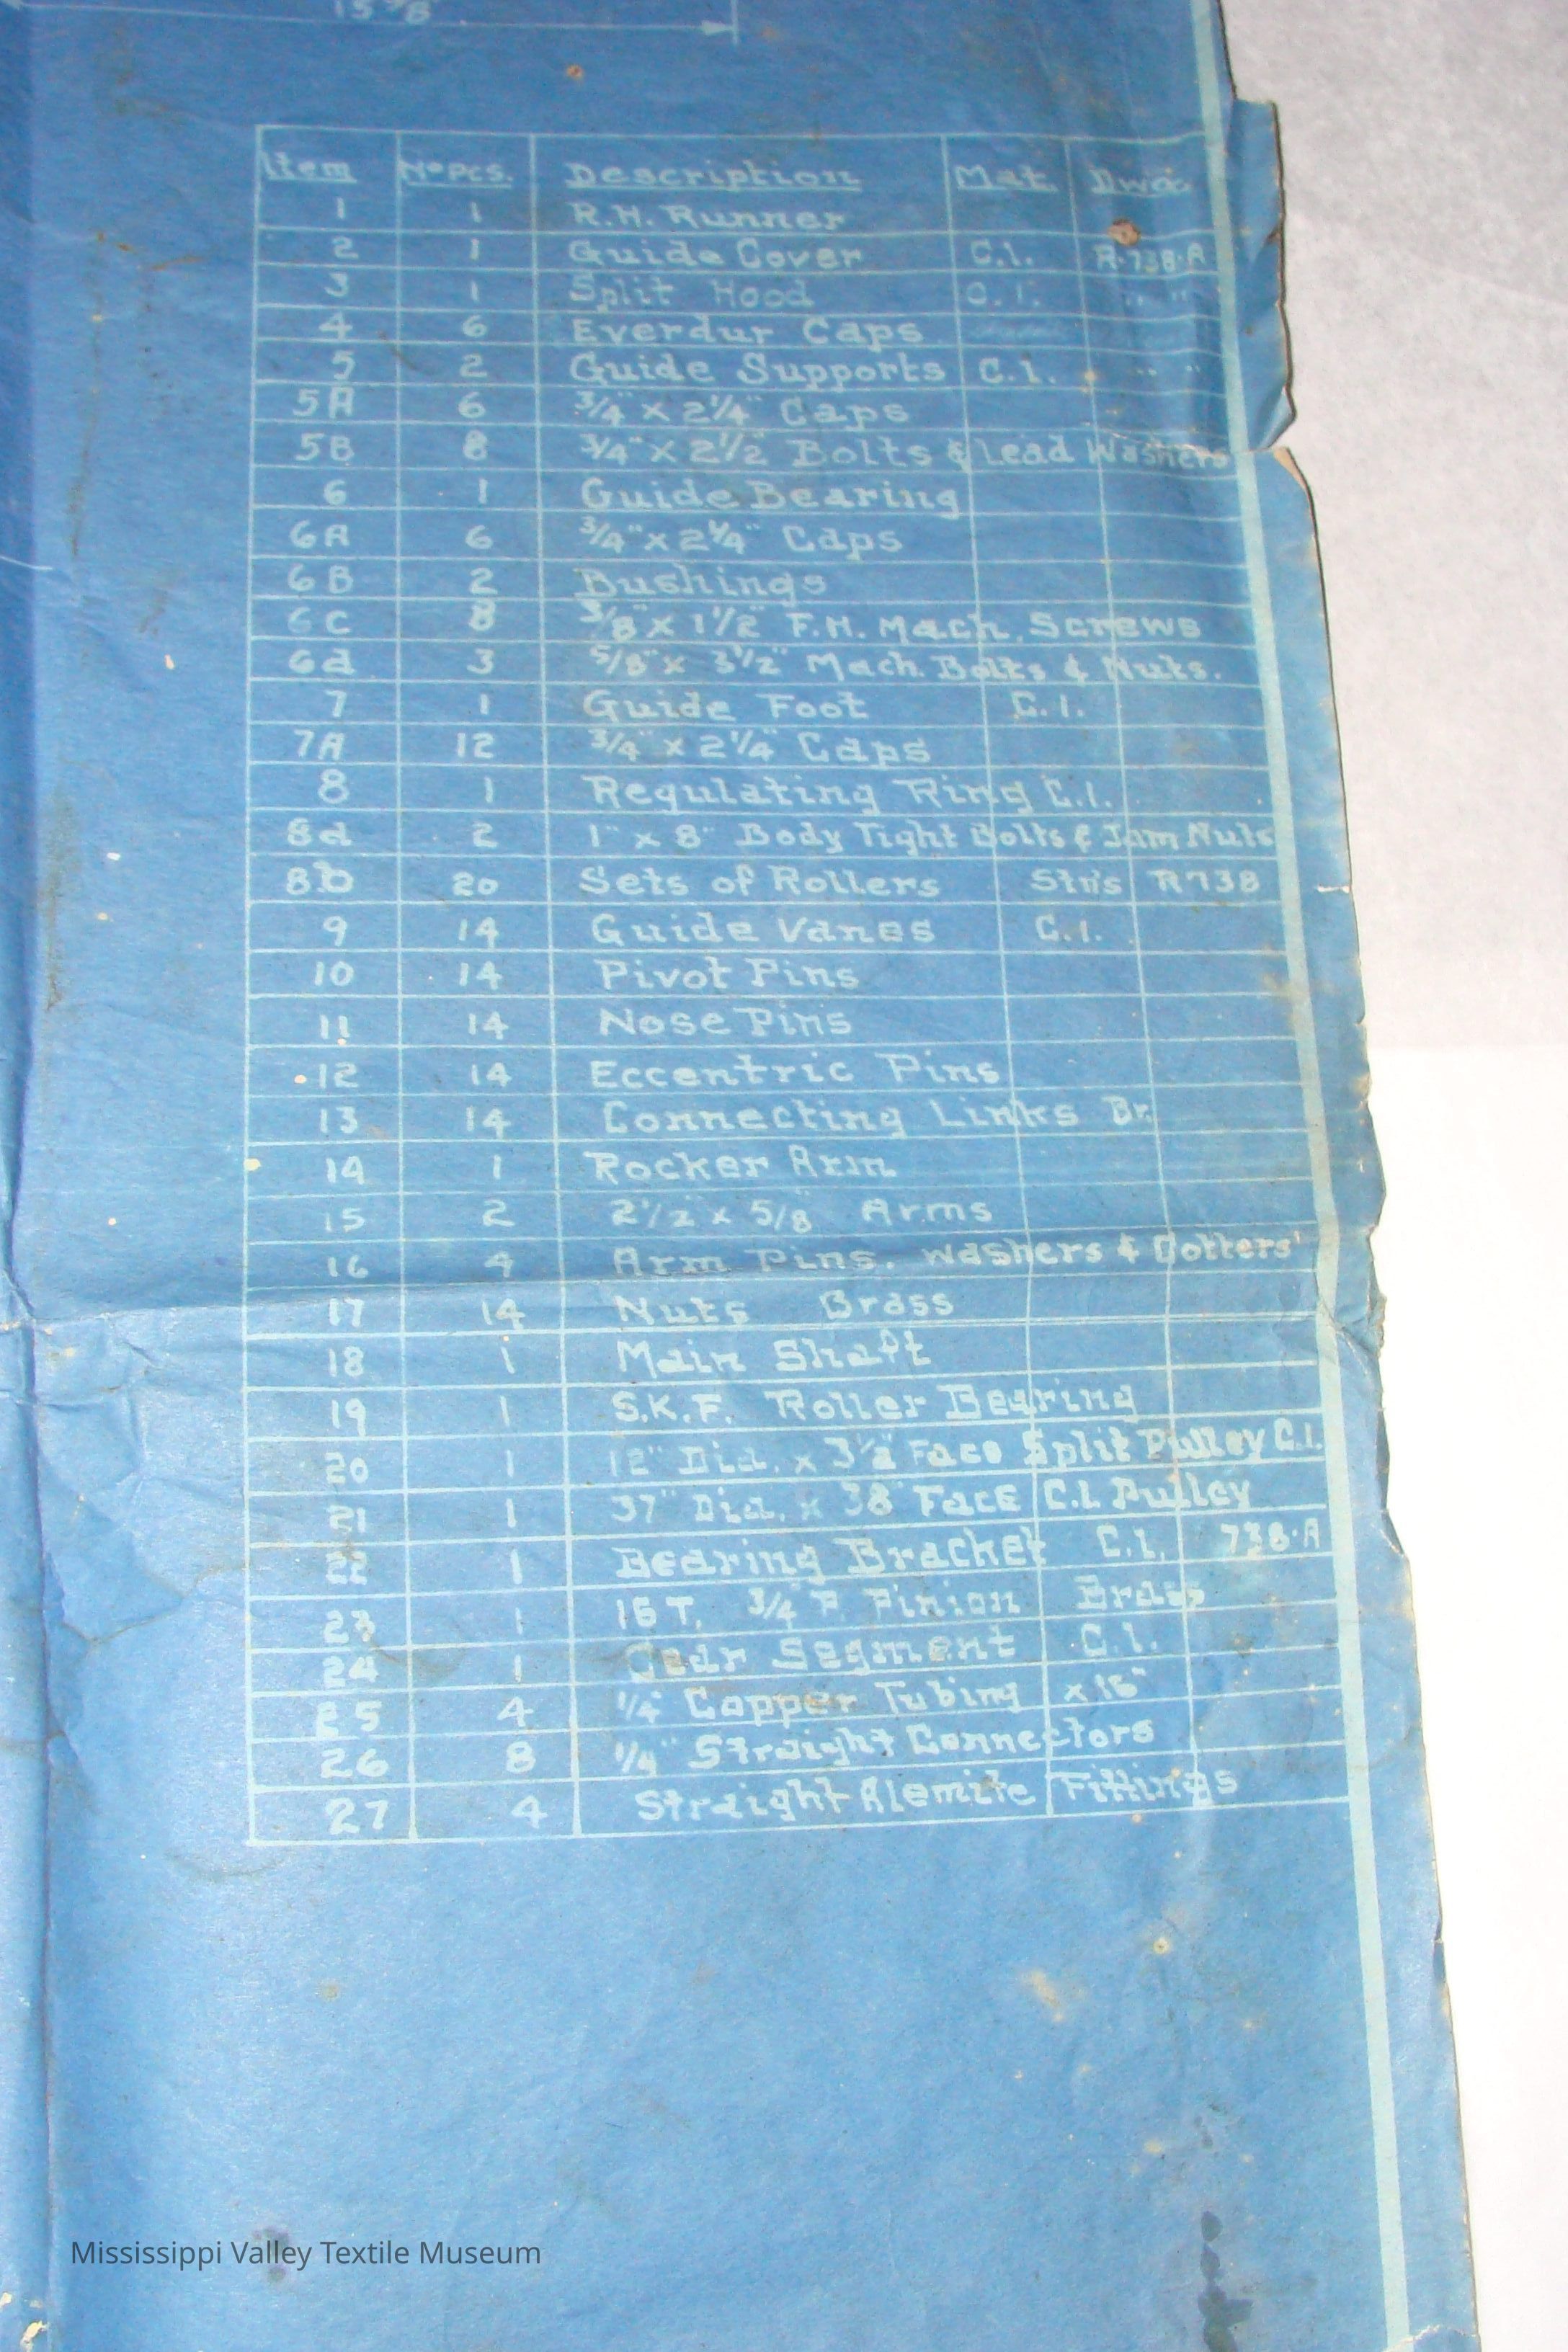 15 7/8"
Item NºPcs. Description Mat. Dwg.
1 1 R.H. Runner
2 1 Guide Cover C.I. R·738·A
3 1 Split Hood C.I. " "
4 6 Everdur Caps
5 2 Guide Supports C.I. " "
5A 6 3/4" x 2 1/4" Caps
5B 8 3/4" x 2 1/2" Bolts & Lead Washers
6 1 Guide Bearing
6A 6 3/4" x 2 1/4" Caps
6B 2 Bushings
6C 8 3/8" x 1 1/2" F.H. Mach. Screws
6d 3 5/8" x 3 1/2" Mach. Bolts & Nuts.
7 1 Guide Foot C.I.
7A 12 3/4" x 2 1/4" Caps
8 1 Regulating Ring C.I.
8a 2 1" x 8" Body Tight Bolts & Jam Nuts
8b 20 Sets of Rollers R738
9 14 Guide Vanes C.I.
10 14 Pivot Pins
11 14 Nose Pins
12 14 Eccentric Pins
13 14 Connecting Links Br.
14 1 Rocker Arm
15 2 2 1/2" x 5/8" Arms
16 4 Arm Pins. Washers & Cotters
17 14 Nuts Brass
18 1 Main Shaft
19 1 S.K.F. Roller Bearing
20 1 12" Dia. x 3 1/2" Face Split Pulley C.I.
21 1 37" Dia. x 38" Face C.I. Pulley
22 1 Bearing Bracket C.I. 738·A
23 1 16 T. 3/4" P. Pinion Brass
24 1 Gear Segment C.I.
25 4 1/4" Copper Tubing x 16"
26 8 1/4" Straight Connectors
27 4 Straight Alemite Fittings
Mississippi Valley Textile Museum